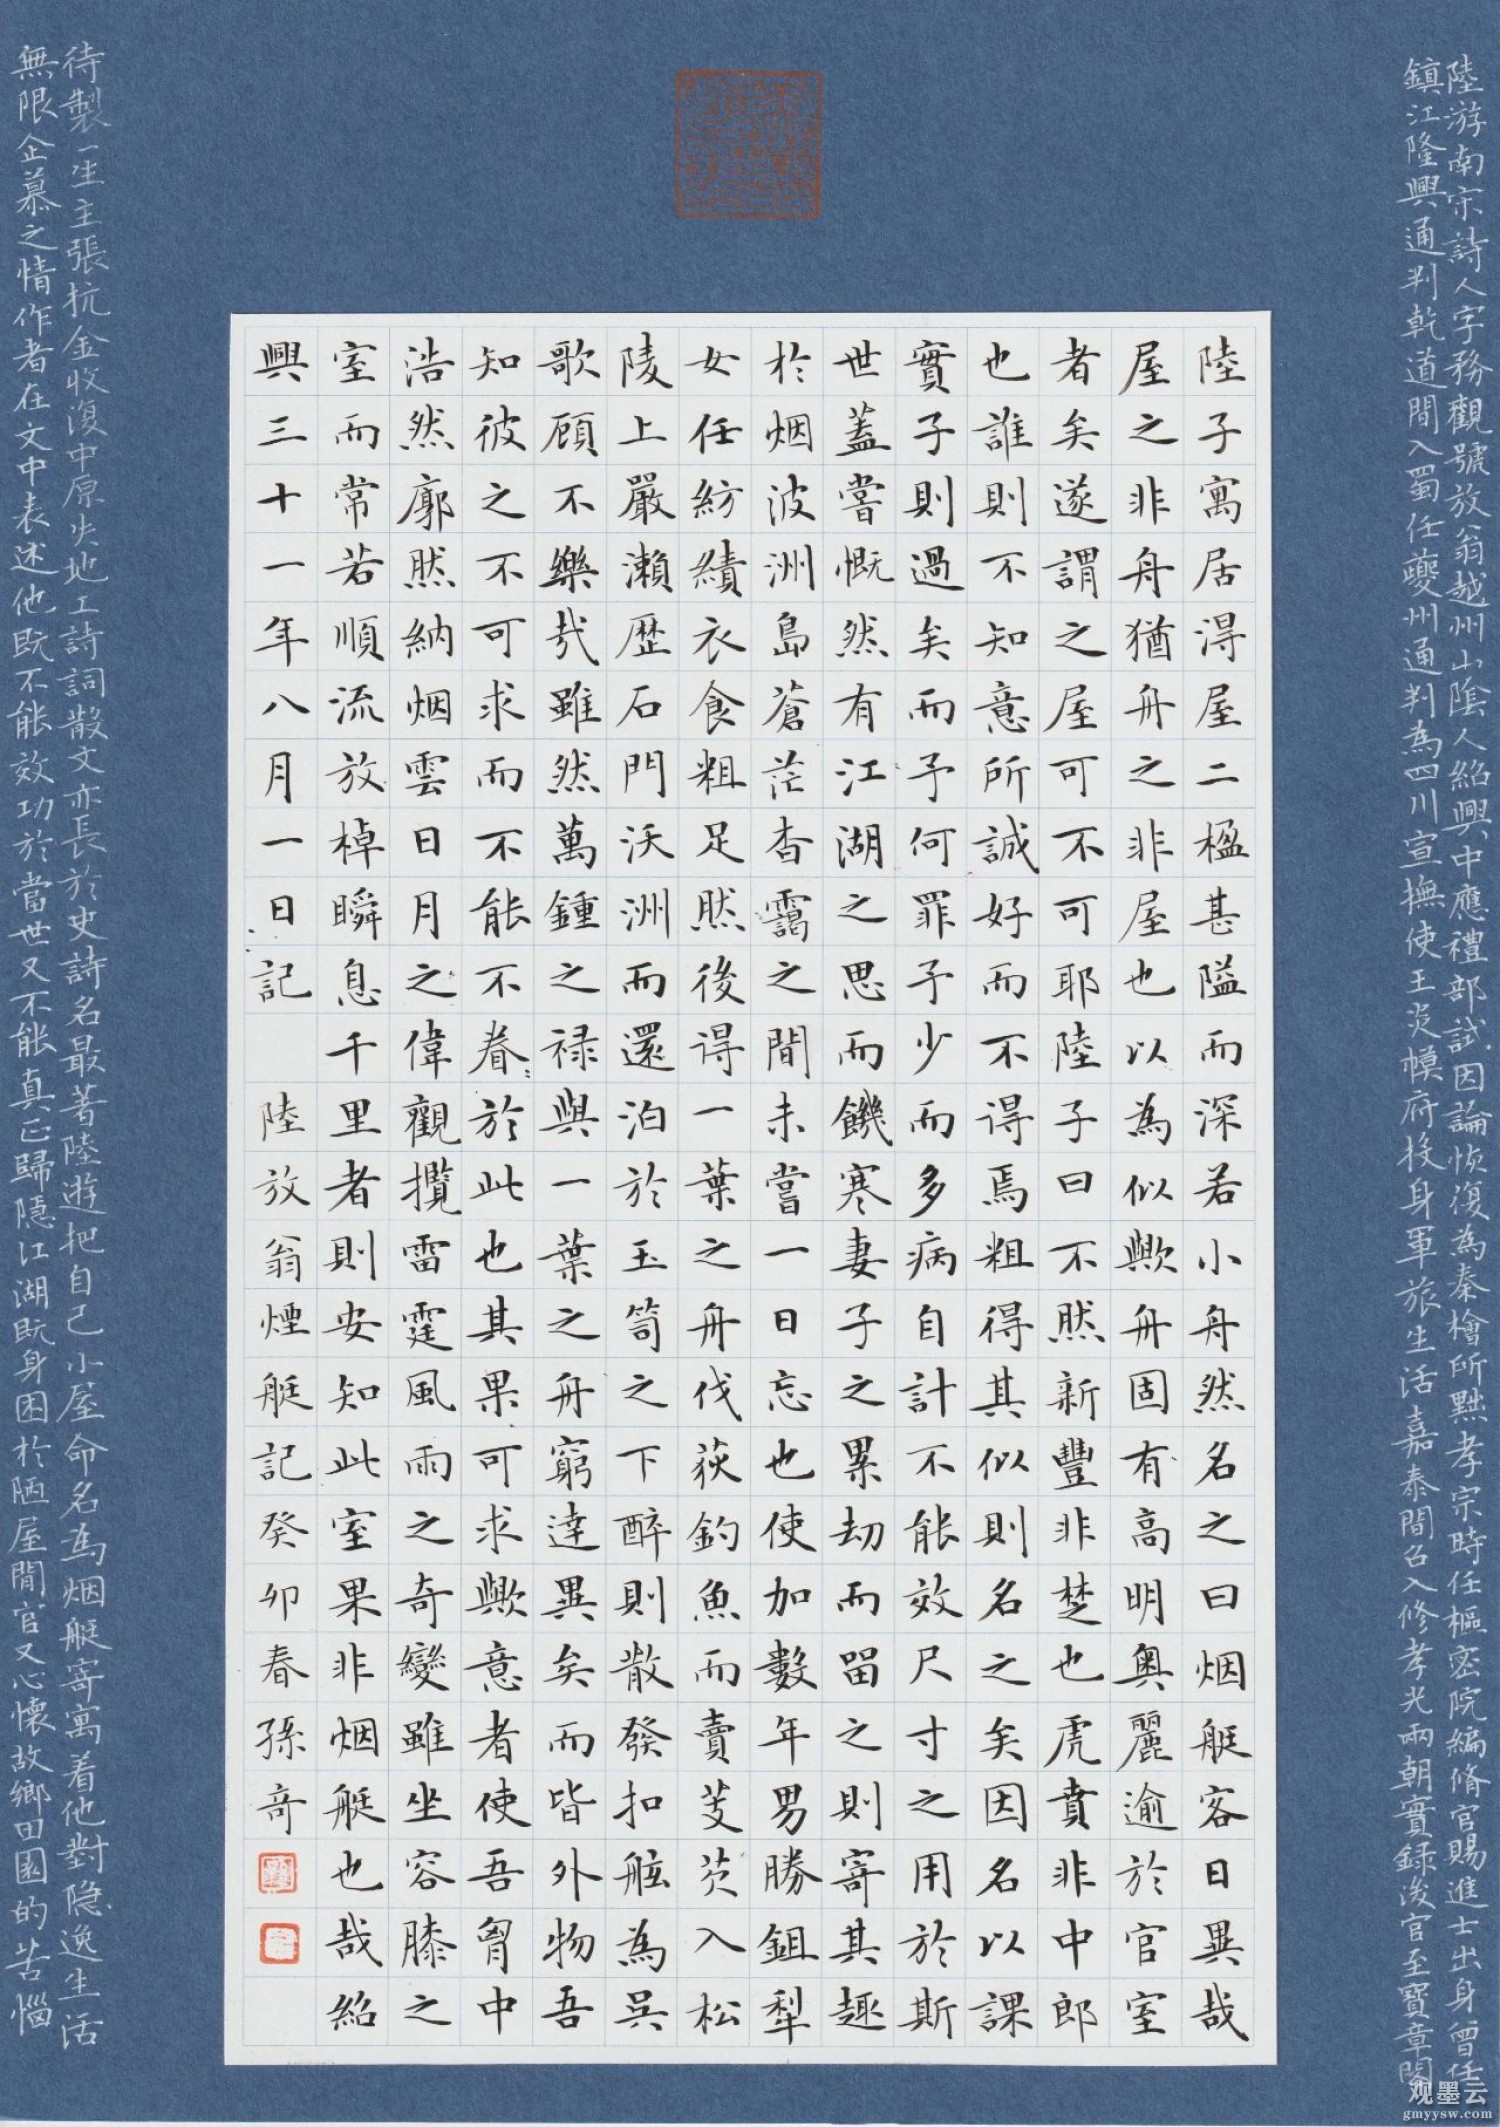 陸游南宋詩人字務觀號放翁越州山陰人紹興中應禮部試因論恢復為秦檜所黜孝宗時任樞密院編脩官賜進士出身曾任
鎮江隆興通判乾道間入蜀任夔州通判為四川宣撫使王炎幙府投身軍旅生活嘉泰間召入修孝光兩朝實録後官至寶章閣
陸子寓居得屋二楹甚隘而深若小舟然名之曰烟艇客曰異哉
屋之非舟猶舟之非屋也以為似歟舟固有高明奧麗逾於官室
者矣遂謂之屋可不可耶陸子曰不然新豐非楚也虎賁非中郎
也誰則不知意所誠好而不得焉粗得其似則名之矣因名以課
實子則過矣而予何罪予少而多病自計不能效尺寸之用於斯
世蓋嘗慨然有江湖之思而饑寒妻子之累劫而留之則寄其趣
於烟波洲島蒼茫杳靄之間未嘗一日忘也使加數年男勝鉏犁
女任紡績衣食粗足然後得一葉之舟伐荻釣魚而賣芰芡入松
陵上嚴瀨歷石門沃洲而還泊於玉笥之下醉則散發扣舷為吳
歌顧不樂哉雖然萬鍾之禄與一葉之舟窮達異矣而皆外物吾
知彼之不可求而不能不眷眷於此也其果可求歟意者使吾胷中
浩然廓然納烟雲日月之偉觀攬雷霆風雨之奇變雖坐容膝之
室而常若順流放棹瞬息千里者則安知此室果非烟艇也哉紹
興三十一年八月一日記 陸放翁煙艇記癸卯春孫奇
待製一生主張抗金收復中原失地工詩詞散文亦長於史詩名最著陸遊把自己小屋命名為烟艇寄寓着他對隐逸生活
無限企慕之情作者在文中表述他既不能效功於當世又不能真正歸隱江湖既身困於陋屋閒官又心懷故鄉田園的苦惱
观墨云
gmyysw.com